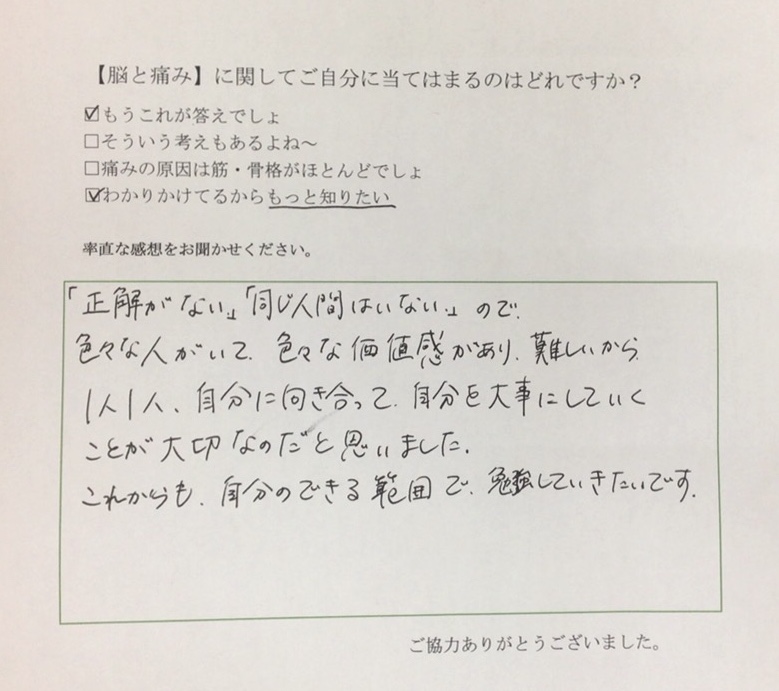 【脳と痛み】に関してご自分に当てはまるのはどれですか？
☑もうこれが答えでしょ
☐そういう考えもあるよね～
☐痛みの原因は筋・骨格がほとんどでしょ
☑わかりかけてるからもっと知りたい
率直な感想をお聞かせください。
「正解がない」「同じ人間はいない」ので、
色々な人がいて、色々な価値感があり、難しいから
1人1人、自分に向き合って、自分を大事にしていく
ことが大切なのだと思いました。
これからも、自分のできる範囲で、勉強していきたいです。
ご協力ありがとうございました。